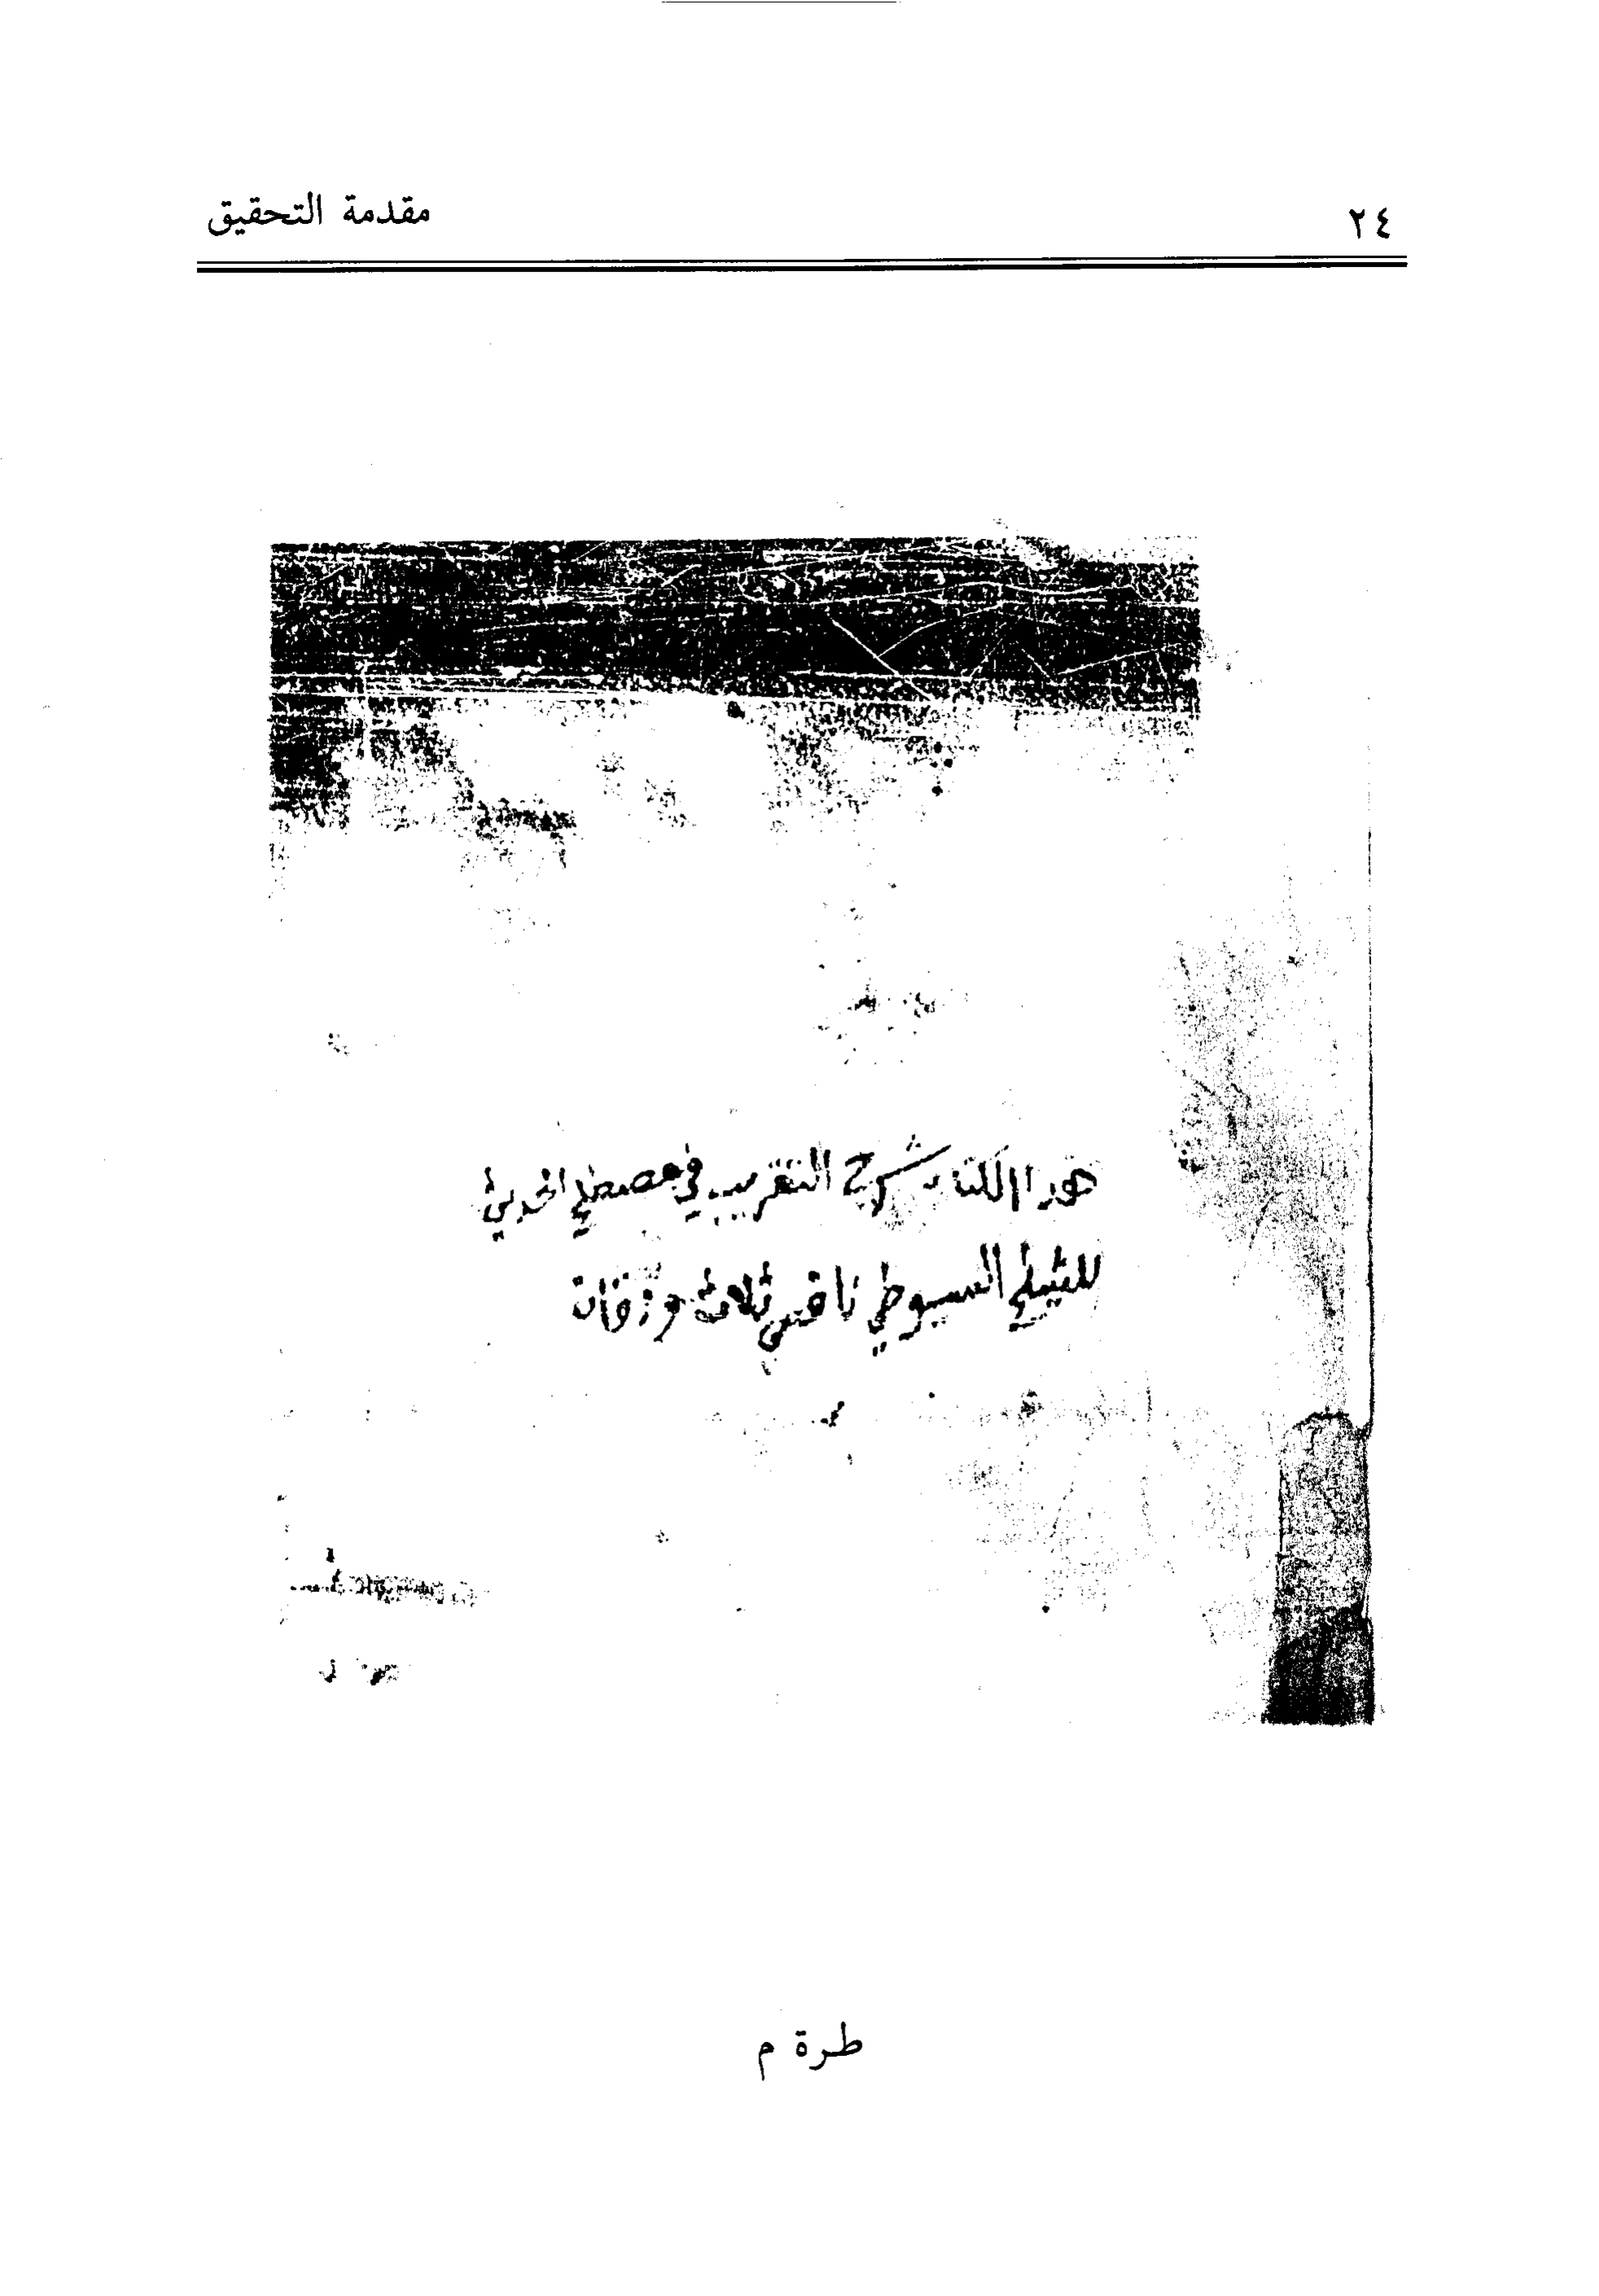 ٢٤
مقدمة التحقيق
هذا الكتاب شرح التقريب في مصطلح الحديث
للشيخ السيوطي ناقص ثلاث ورقات
طرة م